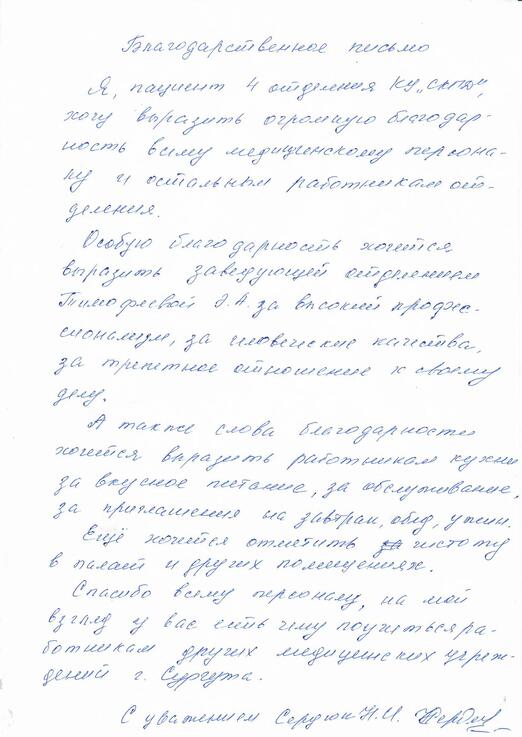 Благодарственное письмо
Я, пациент 4 отделения КУ „СКПНД",
хочу выразить огромную благодар-
ность всему медицинскому персона-
лу и остальным работникам от-
деления.
Особую благодарность хочется
выразить заведующей отделением
Тимофеевой Э.А. за высокий профес-
сионализм, за человеческие качества,
за трепетное отношение к своему
делу.
А также слова благодарности
хочется выразить работникам кухни
за вкусное питание, за обслуживание,
за приглашения на завтрак, обед, ужин.
Ещё хочется отметить чистоту
в палате и других помещениях.
Спасибо всему персоналу, на мой
взгляд у вас есть чему поучиться ра-
ботникам других медицинских учреж-
дений г. Сургута.
С уважением Сердюк Н.И.